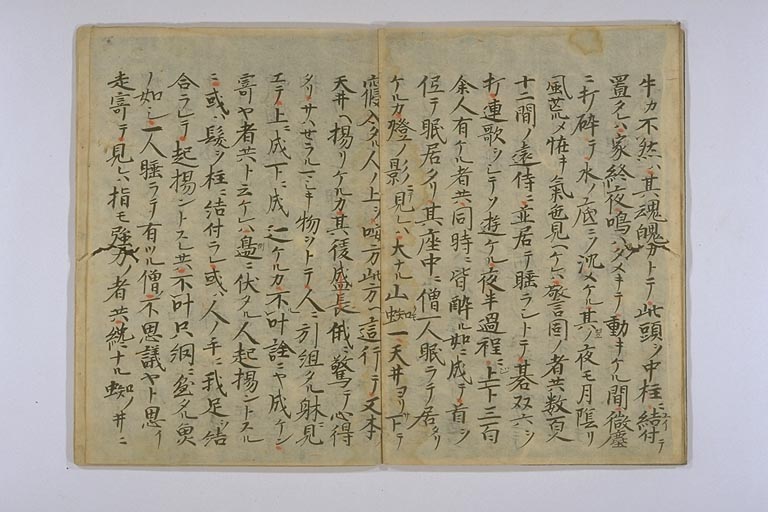 牛カ不然ハ其魂魄カトテ此頭ヲ中柱ニ結付テ
置タレハ家終夜鳴ハタメキテ動キケル間微塵
ニ打碎テ水ノ底ニソ沈メケル其ノ夜モ月陰リ
風荒メ恠キ氣色見ヘケレハ警固ノ者共数百人
十二間ノ遠侍ニ並居テ睡ラントテ碁双六ヲシ
打連歌ヲシテソ遊ケル夜半過程ニ上下三百
余人有ケル者共同時ニ皆酔ル如ニ成テ首ヲ
低テ眠居タリ其座中ニ僧一人眠ラテ居タリ
ケルカ燈ノ影ニ見レハ大ナル山蜘一天井ヨリ下テ
寝入タル人ノ上ヲ彼方此方ヘ這行テ又本
天井ヘ揚リケルカ其後盛長俄ニ驚テ心得
タリサハせラルマシキ物ヲトテ人ニ引組タル躰ニ見
エテ上ニ成下ニ成ケルカ不叶詮ニヤ成ケン
寄ヤ者共ト云ケレハ邊ニ伏タル人起揚ントスル
ニ或ハ髪ヲ柱ニ結付ラレ或ハ人ノ手ニ我足ヲ結
合ラレテ起揚ントスレ共不叶只網ニ盈タル魚
ノ如シ一人睡ラテ有ツル僧不思議ヤト思イ
走寄テ見レハ指モ強力ノ者共纔ナル蜘ノ井ニ